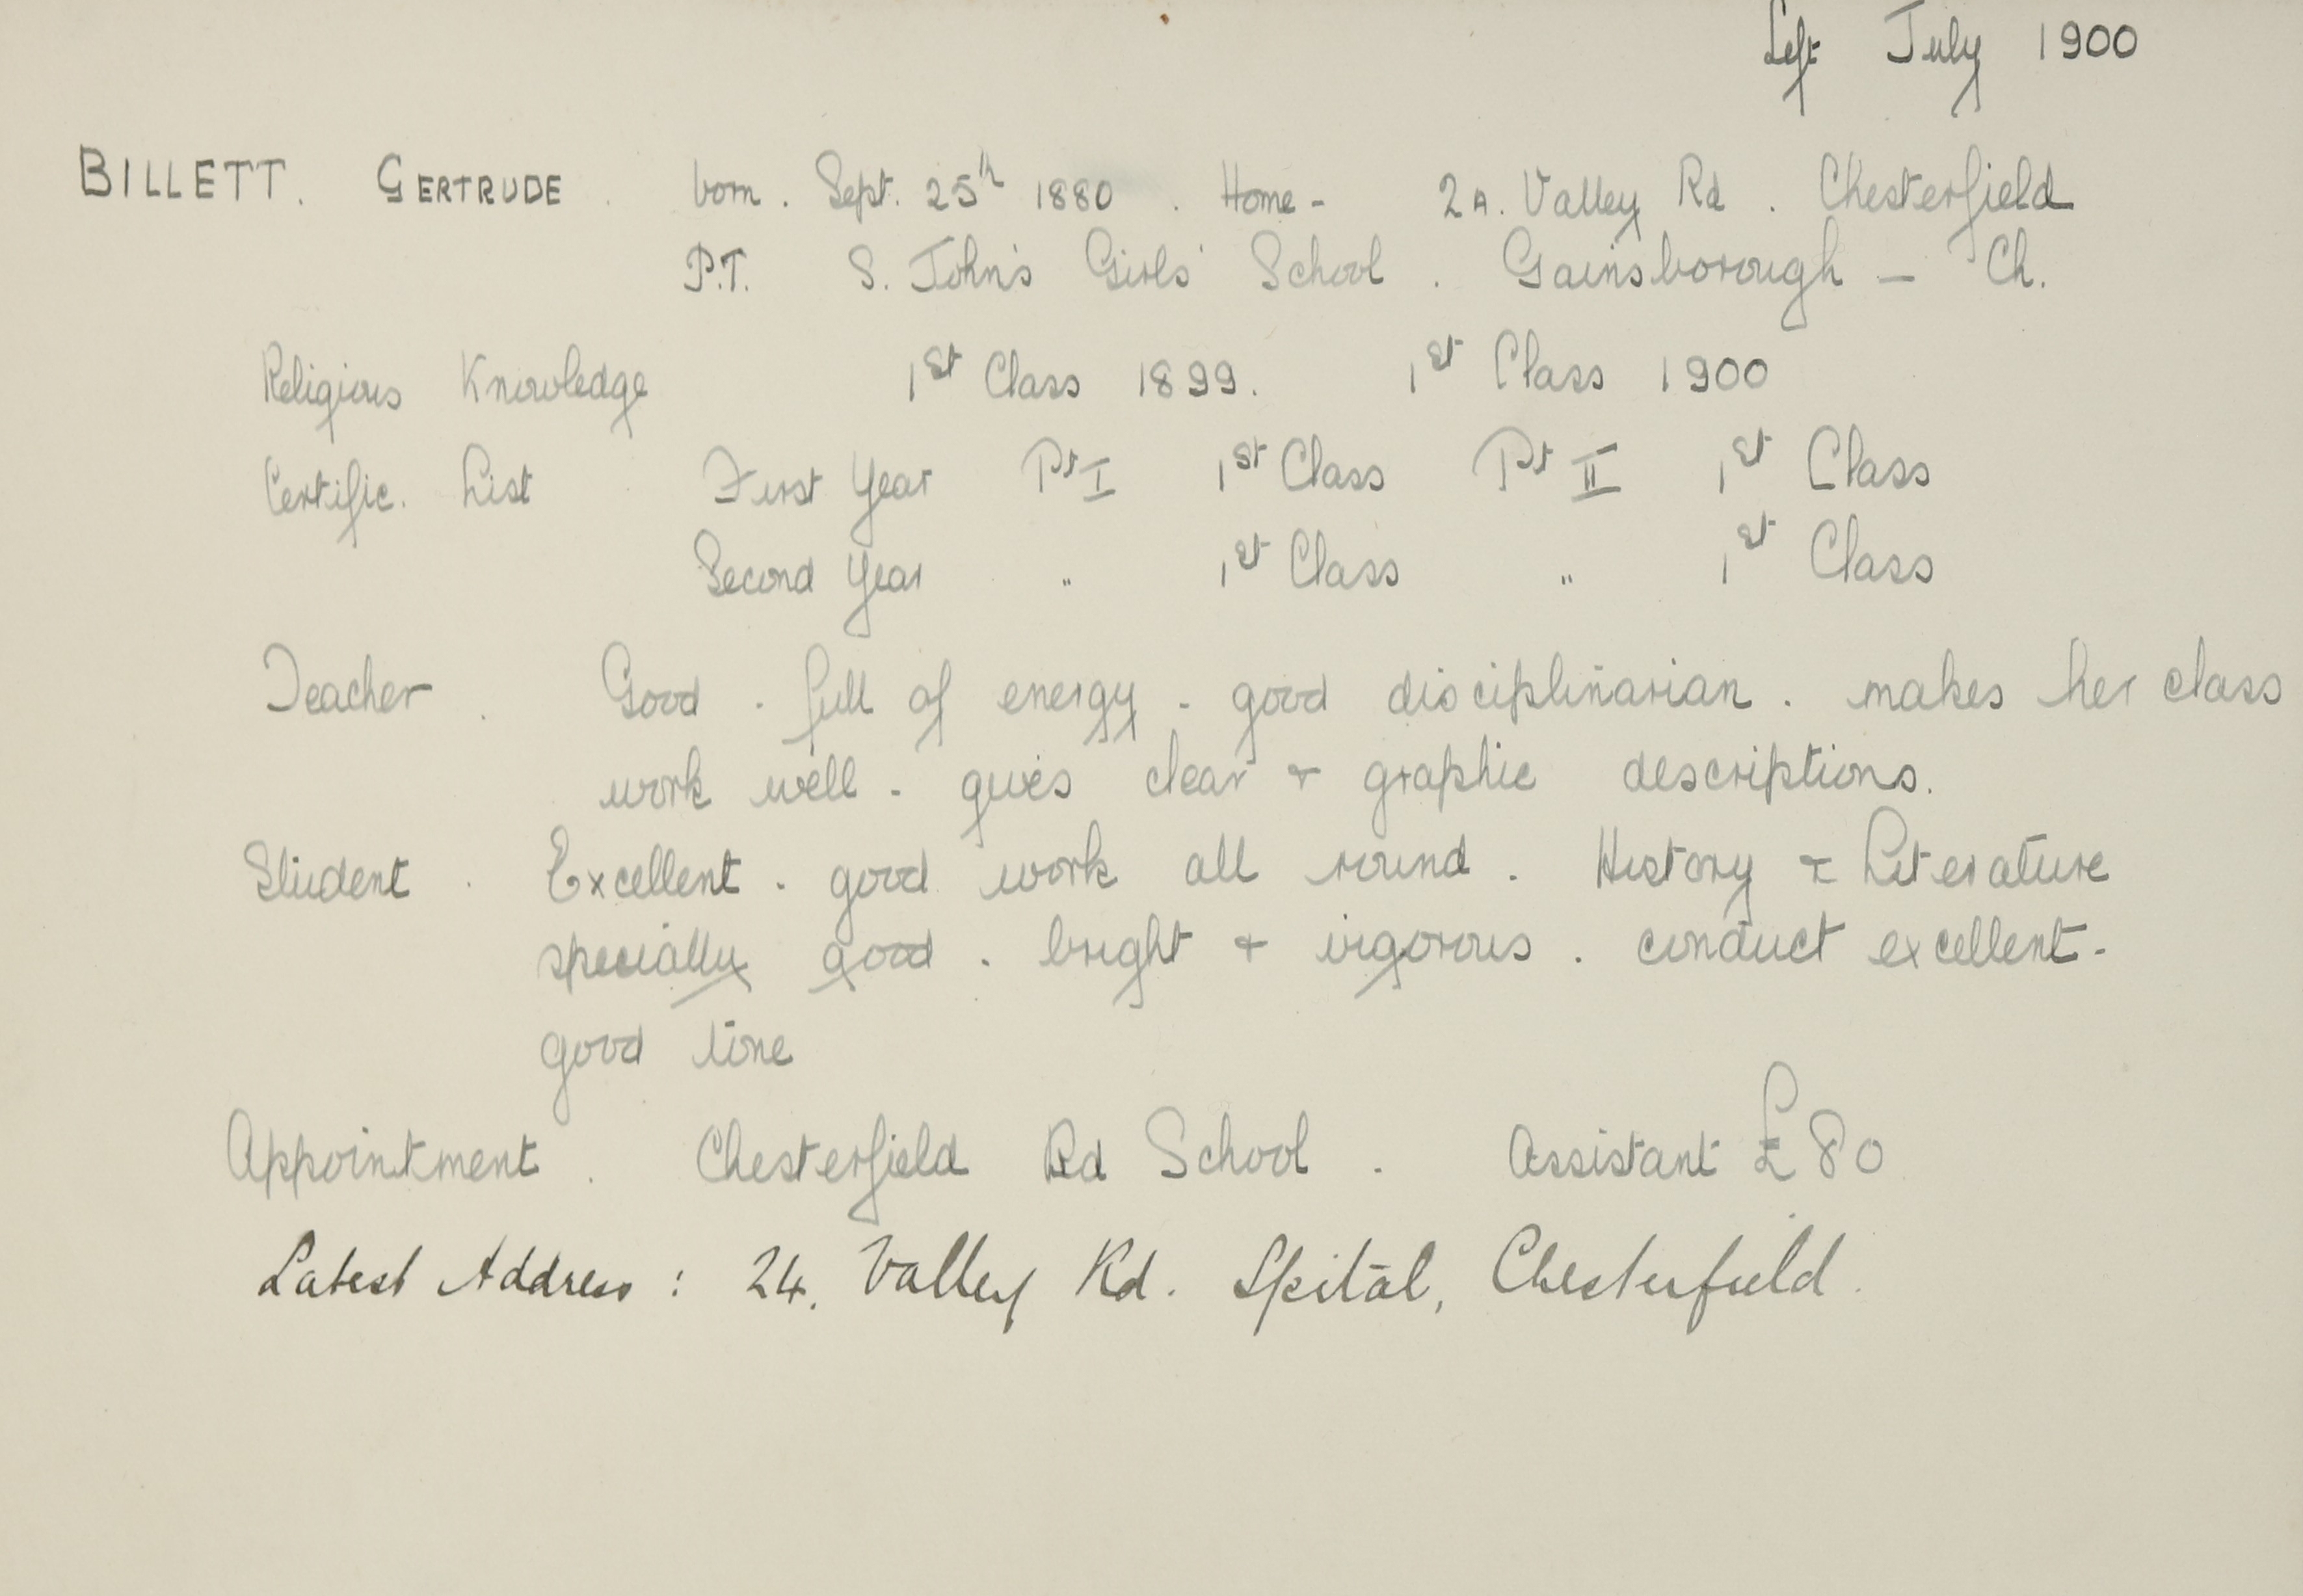 Left July 1900
BILLETT. GERTRUDE. born. Sept. 25th 1880. Home - 2A. Valley Rd. Chesterfield
P.T. S. John's Girls' School. Gainsborough — Ch.
Religious Knowledge 1st Class 1899. 1st Class 1900
Certific. List First Year Pt I 1st Class Pt II 1st Class
Second Year " 1st Class " 1st Class
Teacher. Good. full of energy. good disciplinarian. makes her class
work well. gives clear & graphic descriptions.
Student. Excellent. good work all round. History & Literature
specially good. bright & vigorous. conduct excellent.
good tone
Appointment. Chesterfield Rd School. Assistant £80
Latest Address: 24. Valley Rd. Spital, Chesterfield.